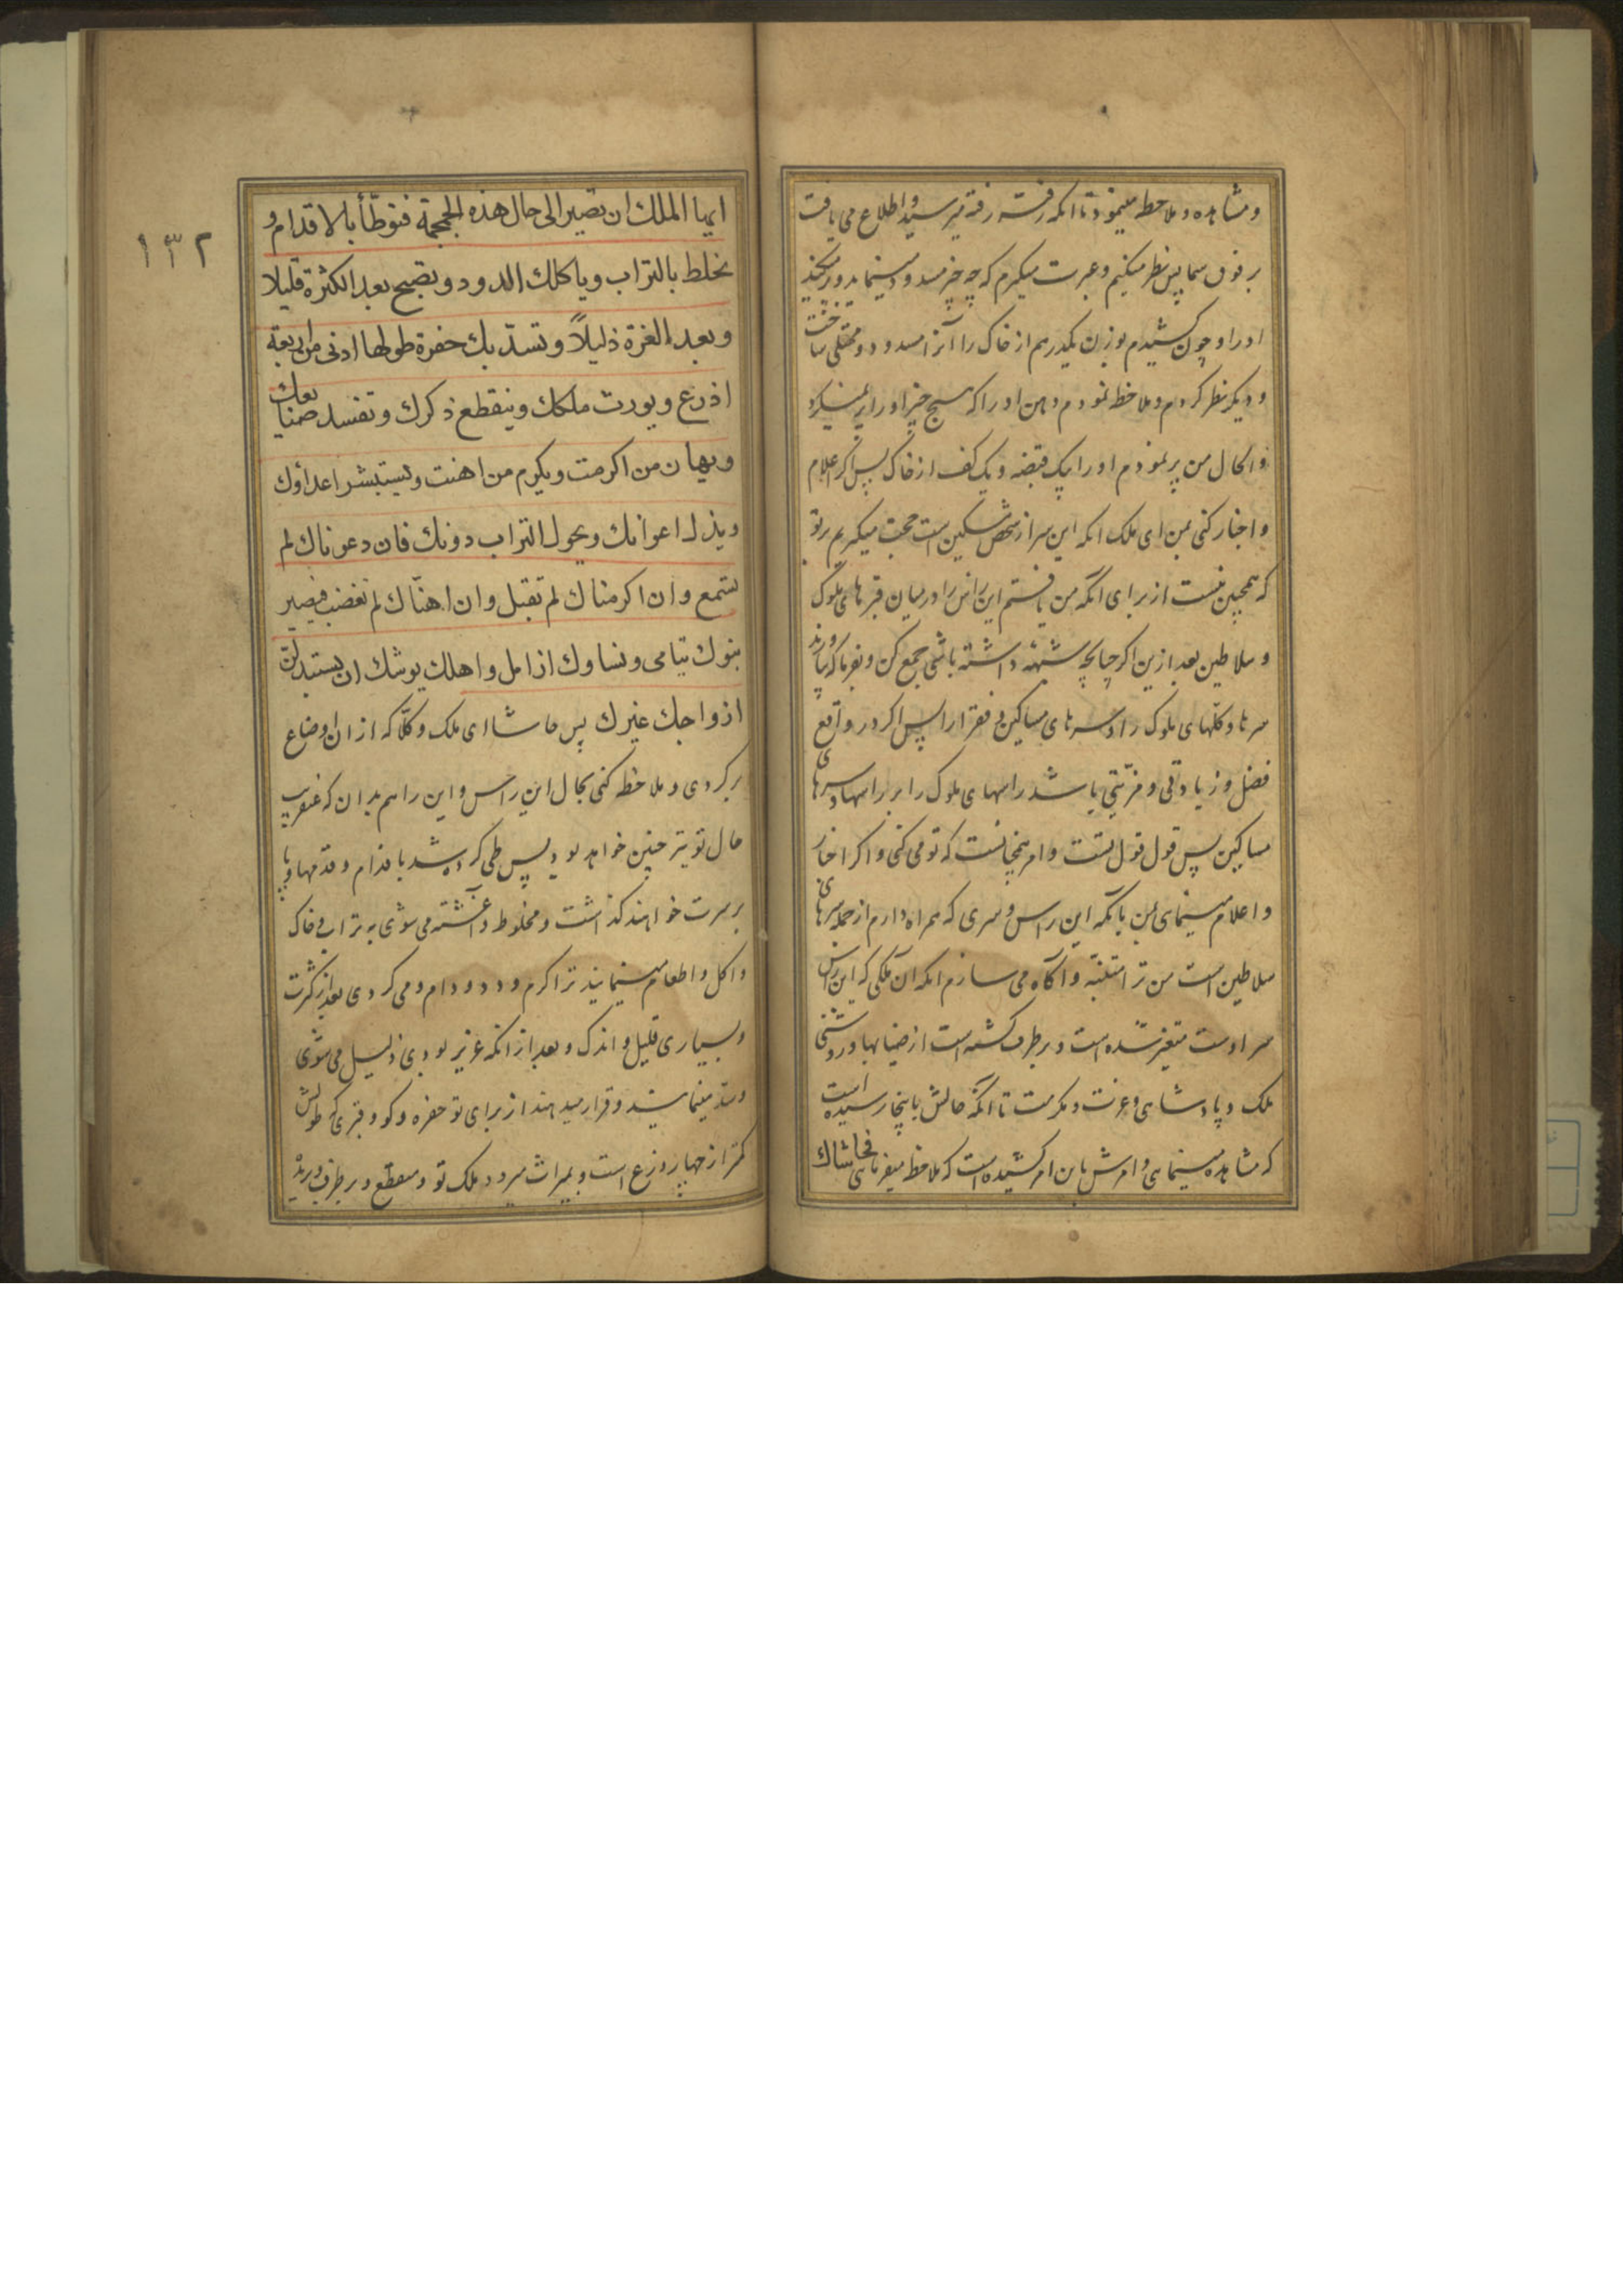 و مشاهده و ملاحظه مینمود تا انکه رفته رفته میرسید و اطلاع می یافت
بر فوق سما پس نظر میکنیم و عبرت میکیرم که چه چیز مسدود مینماید و پر میکند
او را و چون کشیدم بوزن یکدرهم از خاک را آنرا مسدود و ممتلی ساخت
و دیکر نظر کردم و ملاحظه نمودم دهن او را که هیچ چیز او را پر نمیکرد
و الحال من پر نمودم او را بیک قبضه و یک کف از خاک پس اکر اعلام
و اخبار کنی بمن ای ملک انکه این سر از شخص مسکین است حجت میکیریم بر تو
که همچنین نیست از برای آنکه من یافتم این راس را در میان قبرهای ملوک
و سلاطین بعد ازین اکر چنانچه شبهه داشته باشی جمع کن و بفرما که بیاورند
سرها و کلهای ملوک را و سرهای مساکین و فقرا را پس اکر در واقع
فضل و زیادتی و مزیتی باشد راسهای ملوک را بر راسها و سرهای
مساکین پس قول قول تست و امر همچنانست که تو می کنی و اکر اخبار
و اعلام مینمای بمن بانکه این راس و سری که همراه دارم از جمله سرهای
سلاطین است من ترا متنبه و آکاه می سازم انکه ان ملکی که این راس
سر اوست متغیر شده است و برطرف کشته است از ضیا بها و روشنی
ملک و پادشاهی و عزت و مکرمت تا انکه حالش باینجا رسیده است
که مشاهده مینمایی و امرش باین امر کشیده است که ملاحظه میفرمایی فحاشاك
۱۳۲
ایها الملك ان تصیر الی حال هذه الجمجمة فتوطأ بالاقدام و
تخلط بالتراب و یاکلك الدود و تصبح بعد الکثرة قلیلا
و بعد العزة ذلیلاً و تسدّ بك حفرة طولها ادنی من اربعة
اذرع و یورث ملکك و ینقطع ذکرك و تفسد صنایعك
و یهان من اکرمت و یکرم من اهنت و یستبشر اعداؤك
و یذل اعوانك و یحول التراب دونك فان دعوناك لم
تسمع و ان اکرمناك لم تقبل و ان اهنّاك لم تغضب فیصیر
بنوك یتامی و نساوك ارامل و اهلك یوشك ان یستبدلن
ازواجك غیرك پس حاشا ای ملک و کلّا که از ان اوضاع
برکردی و ملاحظه کنی بحال این راس و این را هم بدان که عنقریب
حال تو نیز چنین خواهد بود پس طی کرده شد باقدام و قدمها و پا
بر سرت خواهند کذاشت و مخلوط و آغشته می شوی به تراب و خاک
و اکل و اطعام مینمایند ترا کرم و دد و دام و می کردی بعد از کثرت
و بسیاری قلیل و اندک و بعد از انکه عزیز بودی ذلیل می شوی
و سد مینمایند و قرار میدهند از برای تو حفره و کو و قبری که طولش
کمتر از چهار زرع است و بمیراث میرود ملک تو و منقطع و برطرف